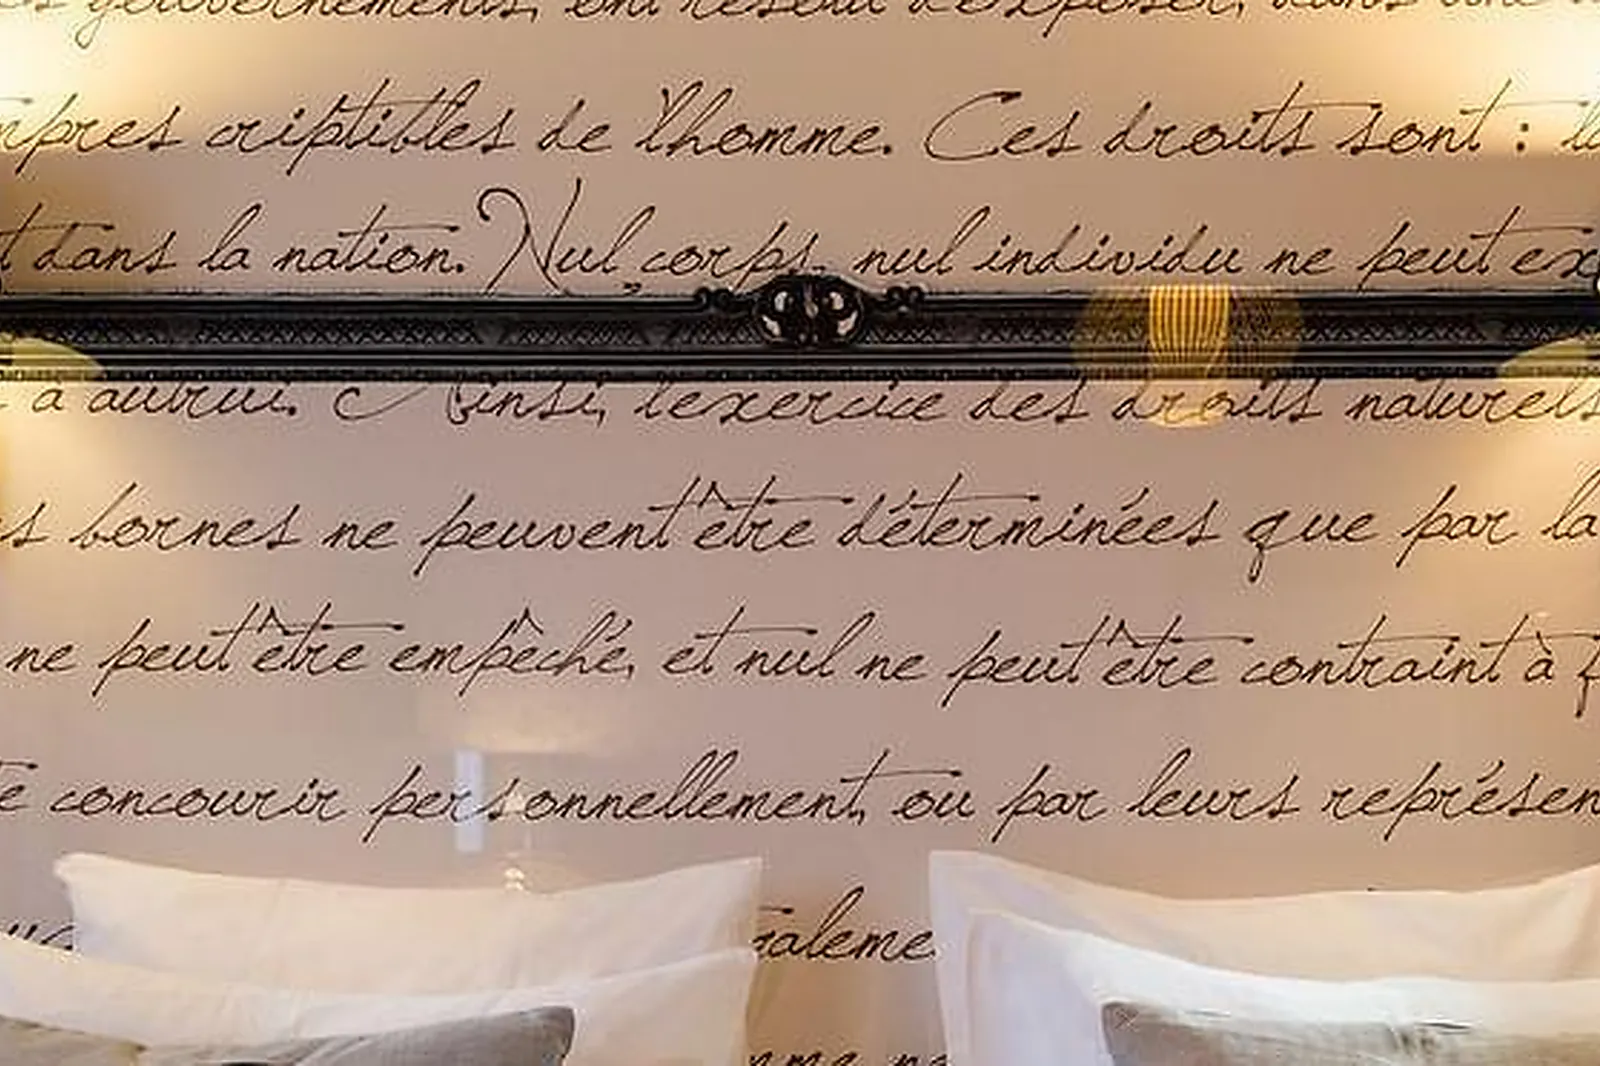 gouvernements, ont résolu d'exposer, dans une
mpres criptibles de l'homme. Ces droits sont : la
t dans la nation. Nul corps, nul individu ne peut ex
à autrui. Ainsi, l'exercice des droits naturels
s bornes ne peuvent être déterminées que par la
ne peut être empêché, et nul ne peut être contraint à
e concourir personnellement, ou par leurs représen
aleme